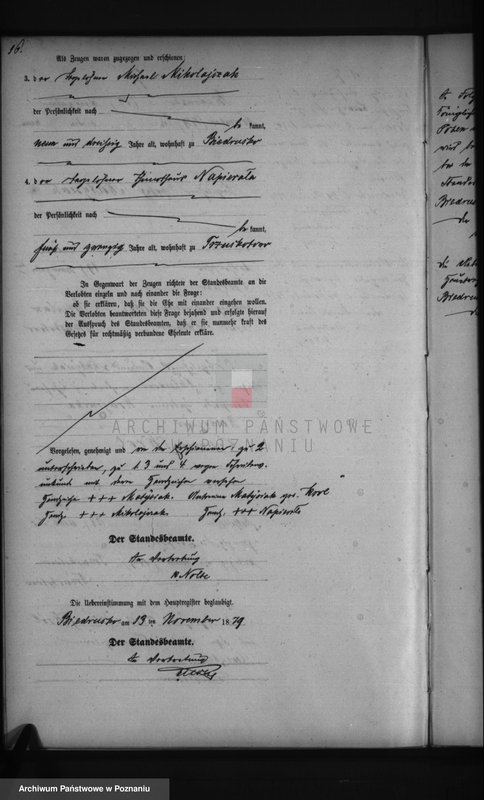 16.
Als Zeugen waren zugezogen und erschienen:
3. der Tagelöhner Michael Mikolajczak
der Persönlichkeit nach
be kannt,
neun und dreißig Jahre alt, wohnhaft zu Biedrusko
4. der Tagelöhner Napierala
der Persönlichkeit nach
be kannt,
fünf und zwanzig Jahre alt, wohnhaft zu
In Gegenwart der Zeugen richtete der Standesbeamte an die
Verlobten einzeln und nach einander die Frage:
ob sie erklären, daß sie die Ehe mit einander eingehen wollen.
Die Verlobten beantworteten diese Frage bejahend und erfolgte hierauf
der Ausspruch des Standesbeamten, daß er sie nunmehr kraft des
Gesetzes für rechtmäßig verbundene Eheleute erkläre.
ARCHIWUM PAŃSTWOWE
W POZNANIU
Vorgelesen, genehmigt und von der Erschienenen zu 2
unterschrieben, zu 1 3 und 4 wegen Schreibens
unkund mit dem Handzeichen versehen
Handzeichen +++ Matysiak. Antonina Matysiak geb.
Handz. +++ Mikolajczak. Handz. +++ Napierala
Der Standesbeamte.
In Vertretung
Nolte
Die Uebereinstimmung mit dem Hauptregister beglaubigt.
Biedrusko am 13 ten November 1879.
Der Standesbeamte.
In Vertretung
Nolte
Biedrus
der
Biedrus
Archiwum Państwowe w Poznaniu